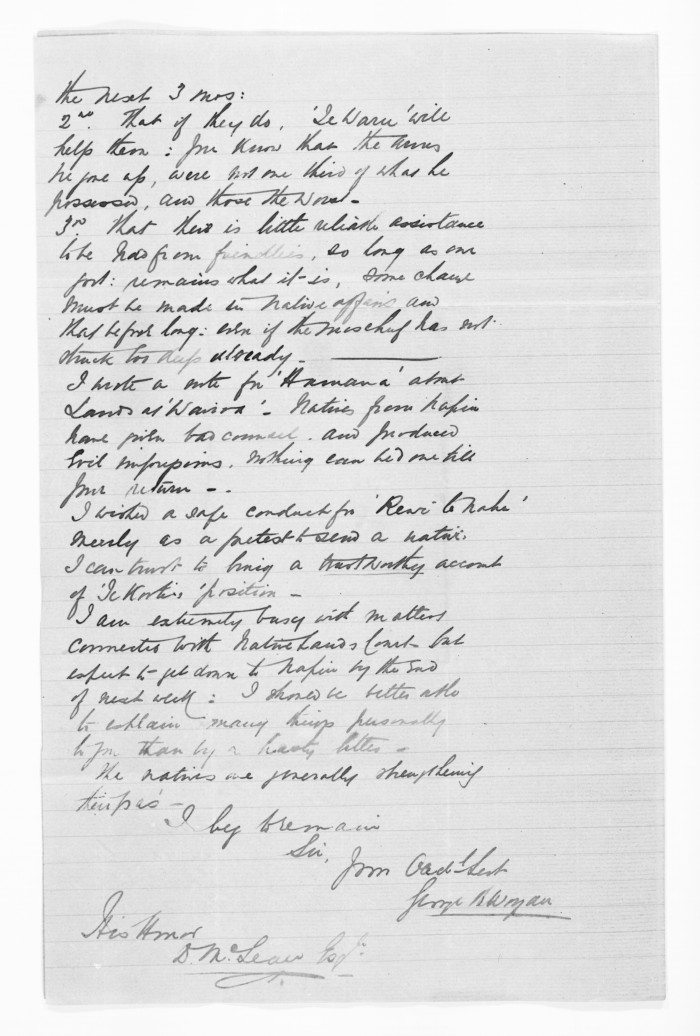 the next 3 mos:
2nd. That if they do, 'Te Waru' will
help them: you know that the arms
he gave up, were not one third of what he
possessed, and those the worst –
3rd. That there is little reliable assistance
to be had from friendlies, so long as our
govt: remains what it is, some change
must be made in native affairs and
that before long: even if the mischief has not
struck too deep already. –
I wrote a note for 'Hamana' about
Lands at 'Wairoa' – Natives from Napier
have given bad counsel. and produced
evil impressions. nothing can be done till
your return – .
I wished a safe conduct for 'Rewi te Nahe'
merely as a pretext to send a native
I can trust to bring a trustworthy account
of 'Te Kooti's' position –
I am extremely busy with matters
connected with Native Lands Court – but
expect to get down to Napier by the end
of next week: I should be better able
to explain many things personally
to you than by a hasty letter –
The natives are generally strengthening
their pas –
I beg to remain
Sir,
Your Obedt. Sert
George B Worgan
His Honor
D. McLean Esqr.